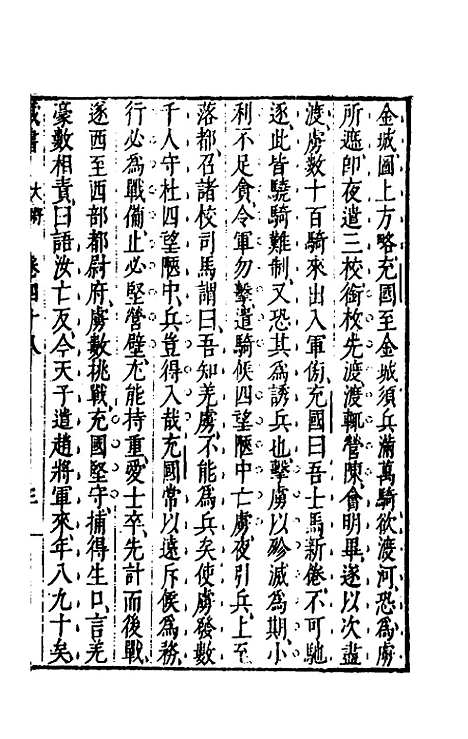 金城圖上方略充國至金城須兵滿萬騎欲渡河恐爲虜
所遮卽夜遣三校銜枚先渡渡輒營陳會明畢遂以次盡
渡虜數十百騎來出入軍傍充國曰吾士馬新倦不可馳
逐此皆驍騎難制又恐其爲誘兵也擊虜以殄滅爲期小
利不足貪令軍勿擊遣騎候四望陿中亡虜夜引兵上至
落都召諸校司馬謂曰吾知羌虜不能爲兵矣使虜發數
千人守杜四望陿中兵豈得入哉充國常以遠斥候爲務
行必爲戰備止必堅營壁尤能持重愛士卒先計而後戰
遂西至西部都尉府虜數挑戰充國堅守捕得生口言羌
豪數相責曰語汝亡反今天子遣趙將軍來年八九十矣
藏書 大將 卷四十八 三